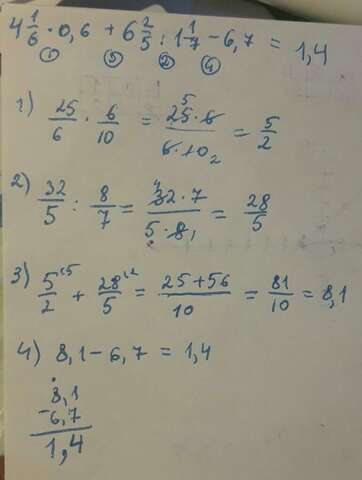 4 1/6 · 0,6 + 6 2/5 : 1 1/7 − 6,7 = 1,4
① ③ ② ④
1) 25/6 · 6/10 = 25·6/6·10 = 5/2
5
2
2) 32/5 : 8/7 = 32·7/5·8 = 28/5
4
1
3) 5/2 + 28/5 = 25+56/10 = 81/10 = 8,1
4) 8,1 − 6,7 = 1,4
8,1
−6,7
1,4